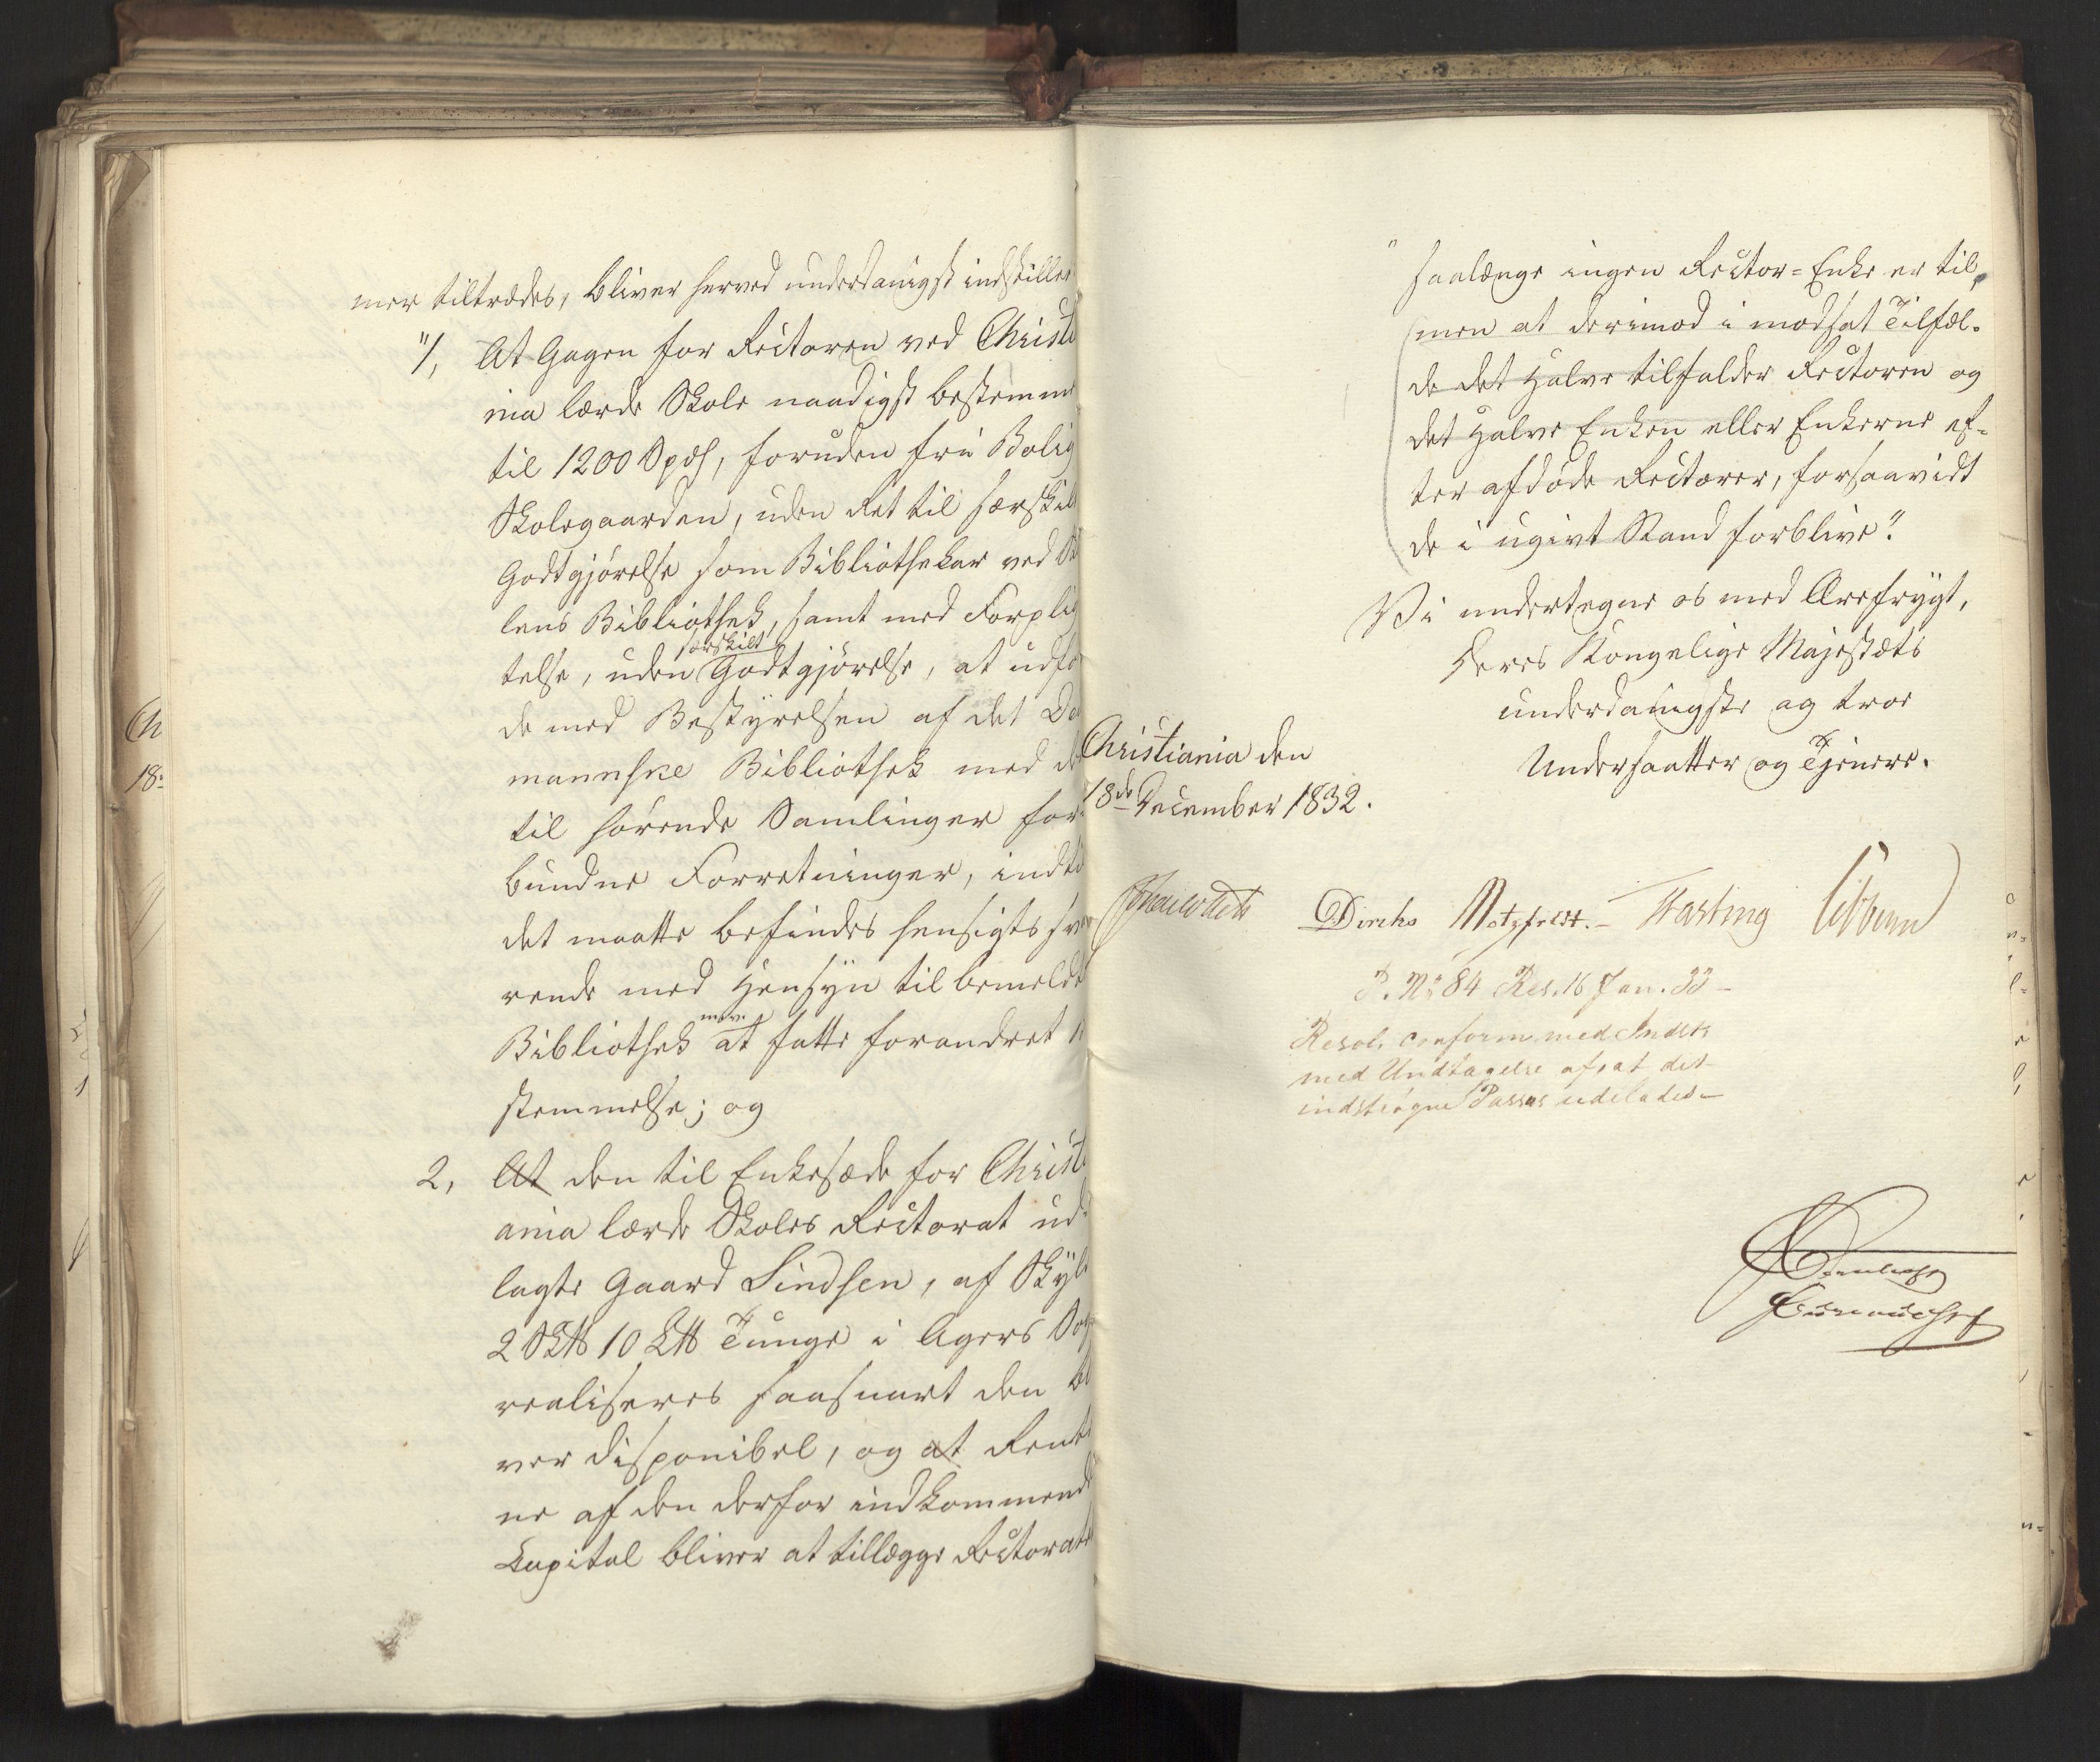 mer tiltrædes, bliver herved underdanigst indstillet
"1, At Gagen for Rectoren ved Christi
nia lærde Skole naadigst bestemmes
til 1200 Spds, foruden fri Bolig
Skolegaarden, uden Ret til særskilt
Godtgjørelse som Bibliothekar ved Sko
lens Bibliothek, samt med Forplig
særskilt
telse, uden Godtgjørelse, at udfø
de med Bestyrelsen af det Dei
mannske Bibliothek med der
til hørende Samlinger for-
bundne Forretninger, indtil
det maatte befindes hensigtssva
rende med Hensyn til bemeldte
Bibliothek at fatte forandret Be
stemmelse; og
2, At den til Enkesæde for Christi
ania lærde Skoles Rectorat ud-
lagte Gaard Lindsen, af Skyld
2 Sk℔ 10 L℔ Tunge i Agers Sogn
realiseres saasnart den bli
ver disponibel, og at Rente
ne af den derfor indkommende
Capital bliver at tillægge Rectoratet
Ch
18
" saalænge ingen Rector=Enke er til,
men at derimod i modsat Tilfæl-
de det Halve tilfalder Rectoren og
det Halve Enken eller Enkerne ef-
ter afdøde Rectorer, forsaavidt
de i ugivt Stand forblive."
Vi undertegne os med Ærefrygt,
Deres Kongelige Majestæts
underdanigste og troe
Undersaatter og Tjenere.
Christiania den
18de December 1832.
Diriks Motzfeldt. Fasting Sibbern
P. No 84 Res. 16 Jan. 33 -
Resol. conform med Indst.
med Undtagelse af, at det
indstregne Passus udelades -
Bureauchef